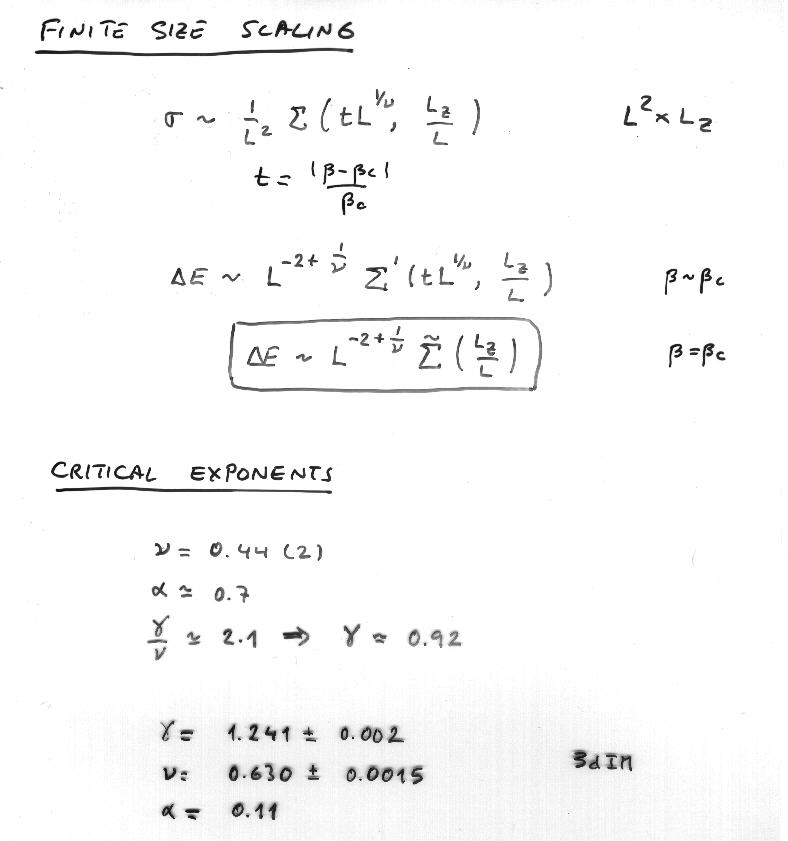 FINITE SIZE SCALING
σ ~ 1/L² Σ (tL^{1/ν}, L_z/L) L² × L_z
t = |β-βc|/βc
ΔE ~ L^{-2+1/ν} Σ' (tL^{1/ν}, L_z/L) β~βc
ΔE ~ L^{-2+1/ν} Σ̃ (L_z/L) β=βc
CRITICAL EXPONENTS
ν = 0.44 (2)
α ≃ 0.7
γ/ν ≃ 2.1 ⇒ γ ≈ 0.92
γ = 1.241 ± 0.002
ν = 0.630 ± 0.0015 3d IM
α = 0.11